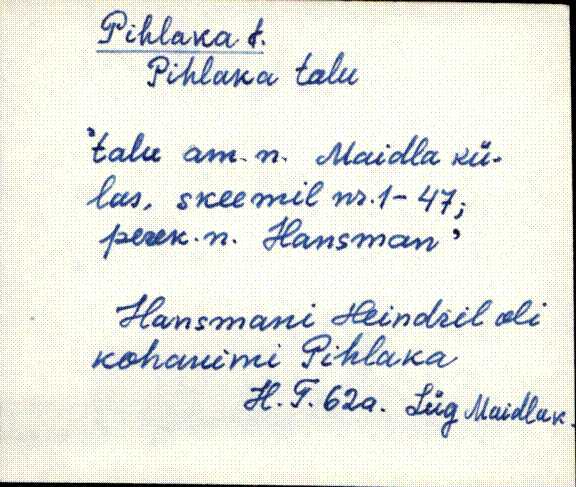 Pihlaka t.
Pihlaka talu
'talu am. n. Maidla kü-
las, skeemil nr. 1-47;
perek. n. Hansman'
Hansmani Heindril oli
kohanimi Pihlaka
H. T. 62a. Lüg Maidla k.